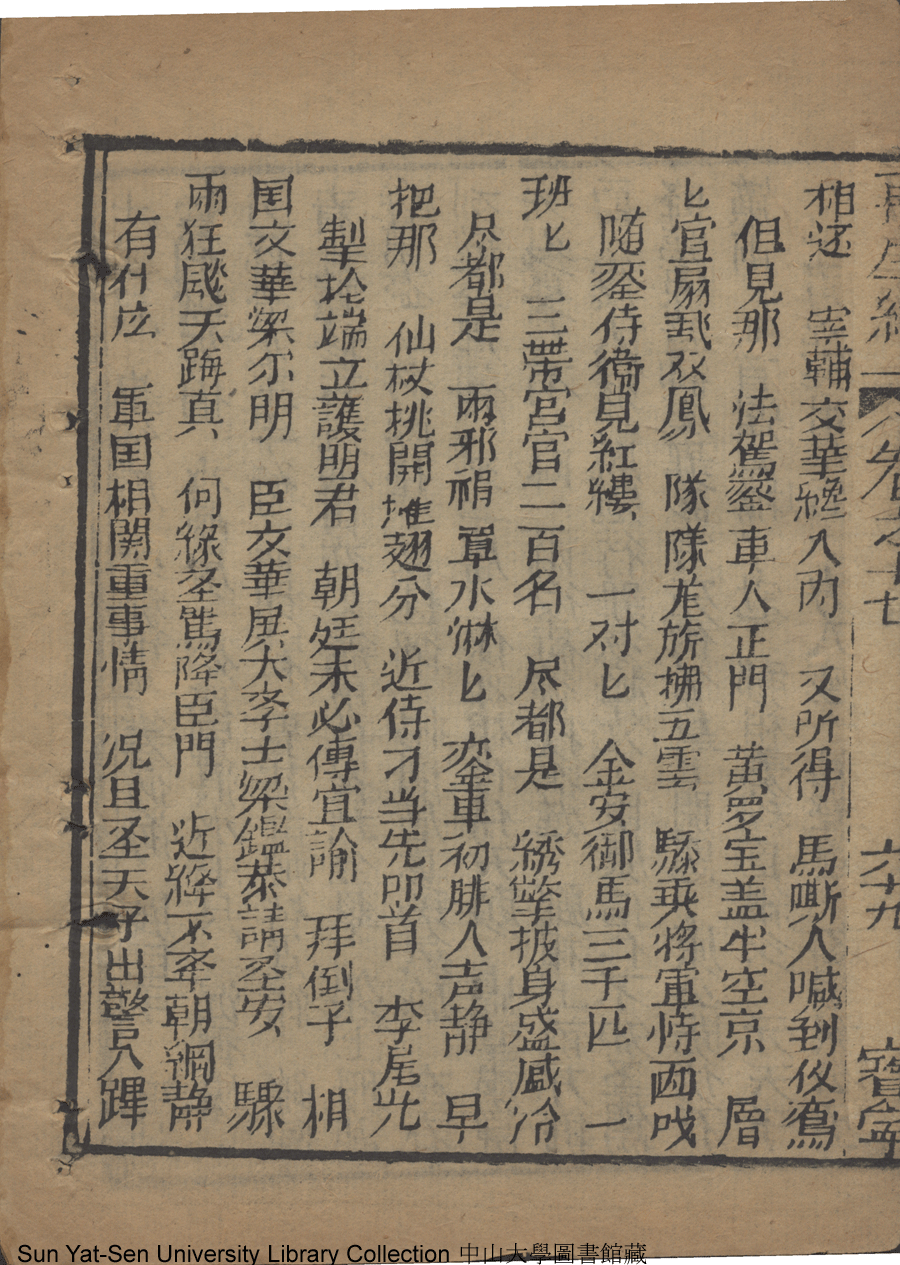 再生緣 卷之十七 六十九
相迎 宰輔文華總入內 又所得 馬嘶人喊到仪鸞
但見那 法駕鑾車人正門 黄罗宝盖半空京 層
匕官扇𢒎双鳳 隊隊龙旂拂五雲 驂乘将軍恃西戏
随銮侍衛見紅纓 一对匕 金安御馬三千匹 一
班匕 三帶宫官二百名 尽都是 綉擎披身盛感冷
尽都是 兩邪褐罩水淋匕 銮車初腓人声静 早
把那 仙杖挑開堆翅分 近侍才当先叩首 李居光
掣抢端立護明君 朝廷未必傳宜諭 拜倒子 相
国文華梁尔明 臣文華展大李士梁鑑恭請圣安 驟
雨狂颷天晦真 何緣圣駕降臣門 近绛不牵朝綱静
有什広 軍国相関重事情 况且圣天子出警入蹕
Sun Yat-Sen University Library Collection 中山大學圖書館藏